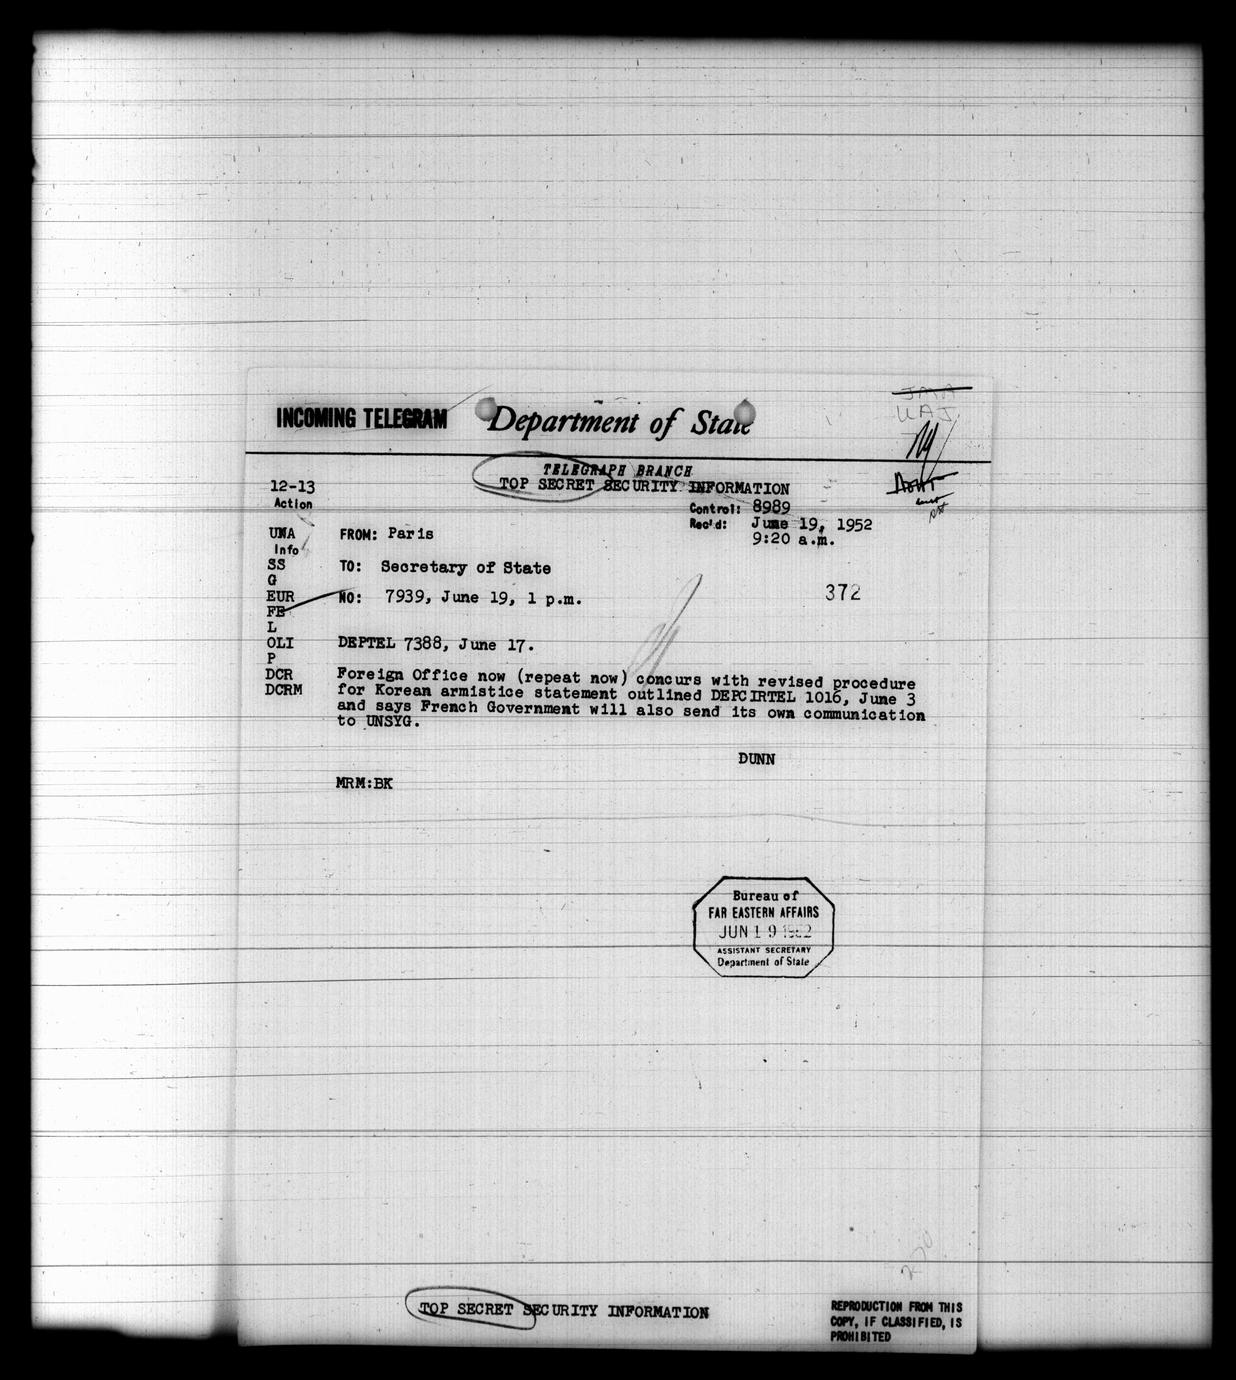 INCOMING TELEGRAM Department of State
UAJ
TELEGRAPH BRANCH
TOP SECRET SECURITY INFORMATION
12-13
Action
Control: 8989
Rec'd: June 19, 1952
9:20 a.m.
UNA
FROM: Paris
Info
SS
TO: Secretary of State
G
EUR
NO: 7939, June 19, 1 p.m.
372
FE
L
OLI
DEPTEL 7388, June 17.
P
DCR
DCRM
Foreign Office now (repeat now) concurs with revised procedure
for Korean armistice statement outlined DEPCIRTEL 1016, June 3
and says French Government will also send its own communication
to UNSYG.
DUNN
MRM:BK
Bureau of
FAR EASTERN AFFAIRS
JUN 19 1952
ASSISTANT SECRETARY
Department of State
TOP SECRET SECURITY INFORMATION
REPRODUCTION FROM THIS
COPY, IF CLASSIFIED, IS
PROHIBITED